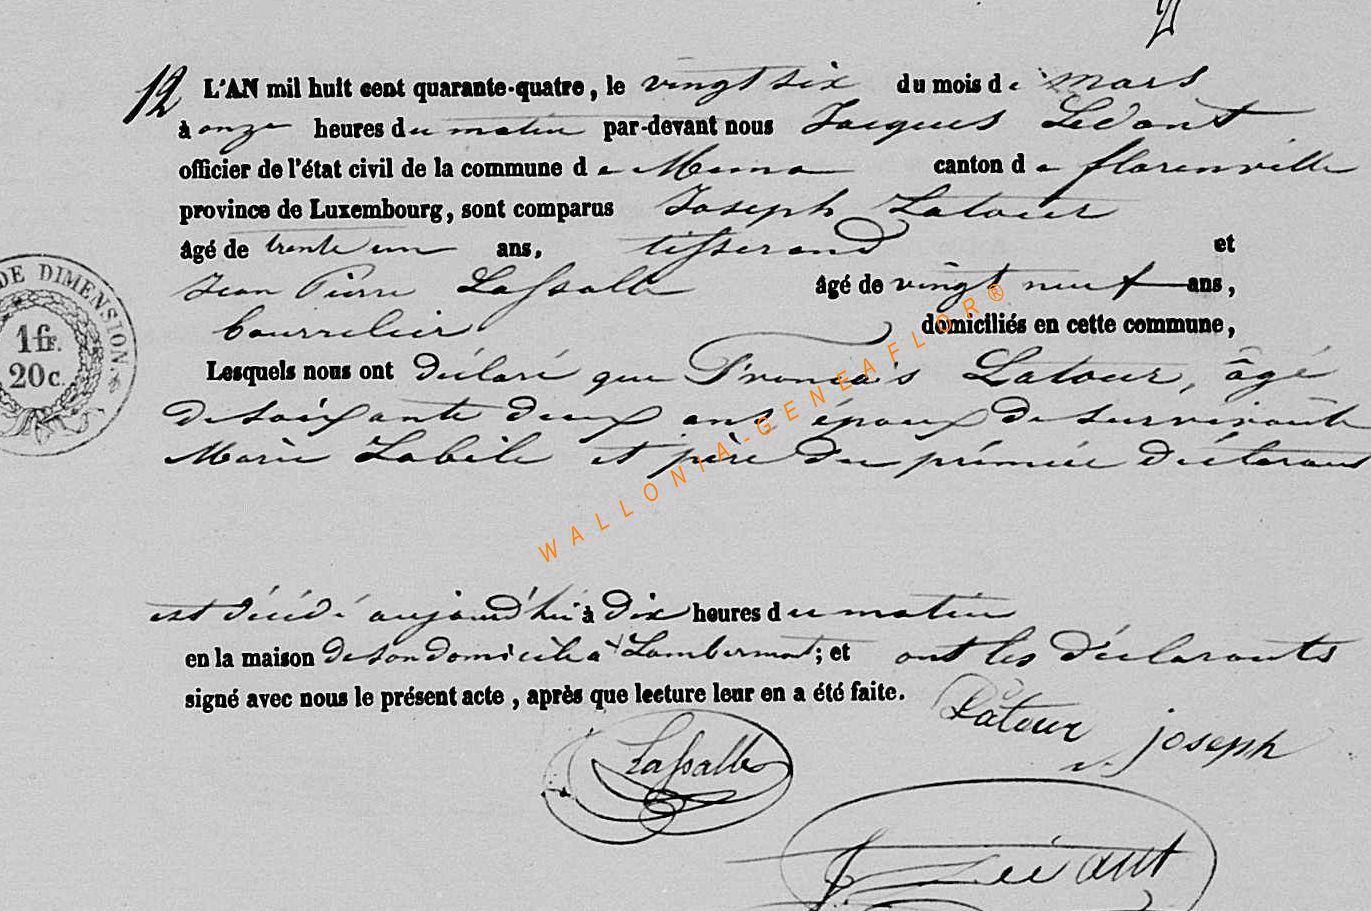 12 L'AN mil huit cent quarante-quatre, le vingt six du mois de mars
à onze heures du matin par-devant nous Jacques Liéant
officier de l'état civil de la commune de Muno canton de florenville
province de Luxembourg, sont comparus Joseph Latour
âgé de trente un ans, tisserand et
Jean Pierre Lassalle âgé de vingt neuf ans,
bourrelier domiciliés en cette commune,
Lesquels nous ont déclaré que Francois Latour, âgé
de soixante deux ans époux de survivante
Marie Labile et père du prémier déclarant
est décédé aujourd'hui à dix heures du matin
en la maison de son domicile à Lambermont; et ont les déclarants
signé avec nous le présent acte, après que lecture leur en a été faite.
Latour joseph
Lassalle
J Liéant
DE DIMENSION.
1 fr.
20 c.
WALLONIA-GENEAFLOR®